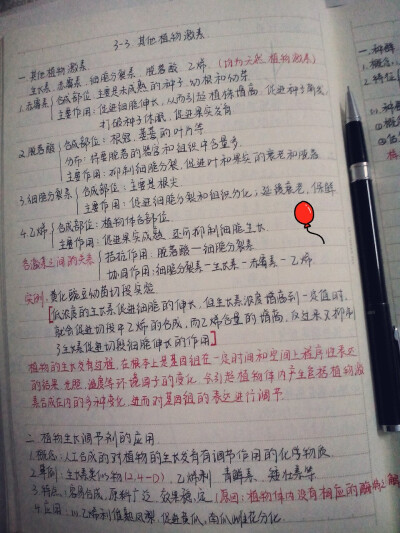 3-3 其他植物激素
一、其他植物激素
生长素、赤霉素、细胞分裂素、脱落酸、乙烯 (均为天然植物激素)
1.赤霉素 合成部位:主要是未成熟的种子、幼根和幼芽
主要作用:促进细胞伸长,从而引起植株增高,促进种子萌发,
打破种子休眠,促进果实发育
2.脱落酸 合成部位:根冠、萎蔫的叶片等
分布:将要脱落的器官和组织中含量多
主要作用:抑制细胞分裂,促进叶和果实的衰老和脱落
3.细胞分裂素 合成部位:主要是根尖
主要作用:促进细胞分裂和组织分化;延缓衰老,保鲜
4.乙烯 合成部位:植物体各部位
主要作用:促进果实成熟,还可抑制细胞生长
各激素之间的关系 拮抗作用:脱落酸—细胞分裂素
协同作用:细胞分裂素—生长素—赤霉素—乙烯
实例:黄化豌豆幼苗切段实验
[低浓度的生长素促进细胞的伸长,但生长素浓度增高到一定值时,
就会促进切段中乙烯的合成,而乙烯含量的增高,反过来又抑制
了生长素促进切段细胞伸长的作用]
植物的生长发育过程,在根本上是基因组在一定时间和空间上程序性表达
的结果,光照、温度等环境因子的变化,会引起植物体内产生包括植物激
素合成在内的多种变化,进而对基因组的表达进行调节
二、植物生长调节剂的应用
1.概念:人工合成的对植物的生长发育有调节作用的化学物质
2.举例:生长素类似物(2,4-D)、乙烯利、青鲜素、矮壮素等
3.特点:容易合成,原料广泛,效果稳定(原因:植物体内没有相应的酶
4.应用: